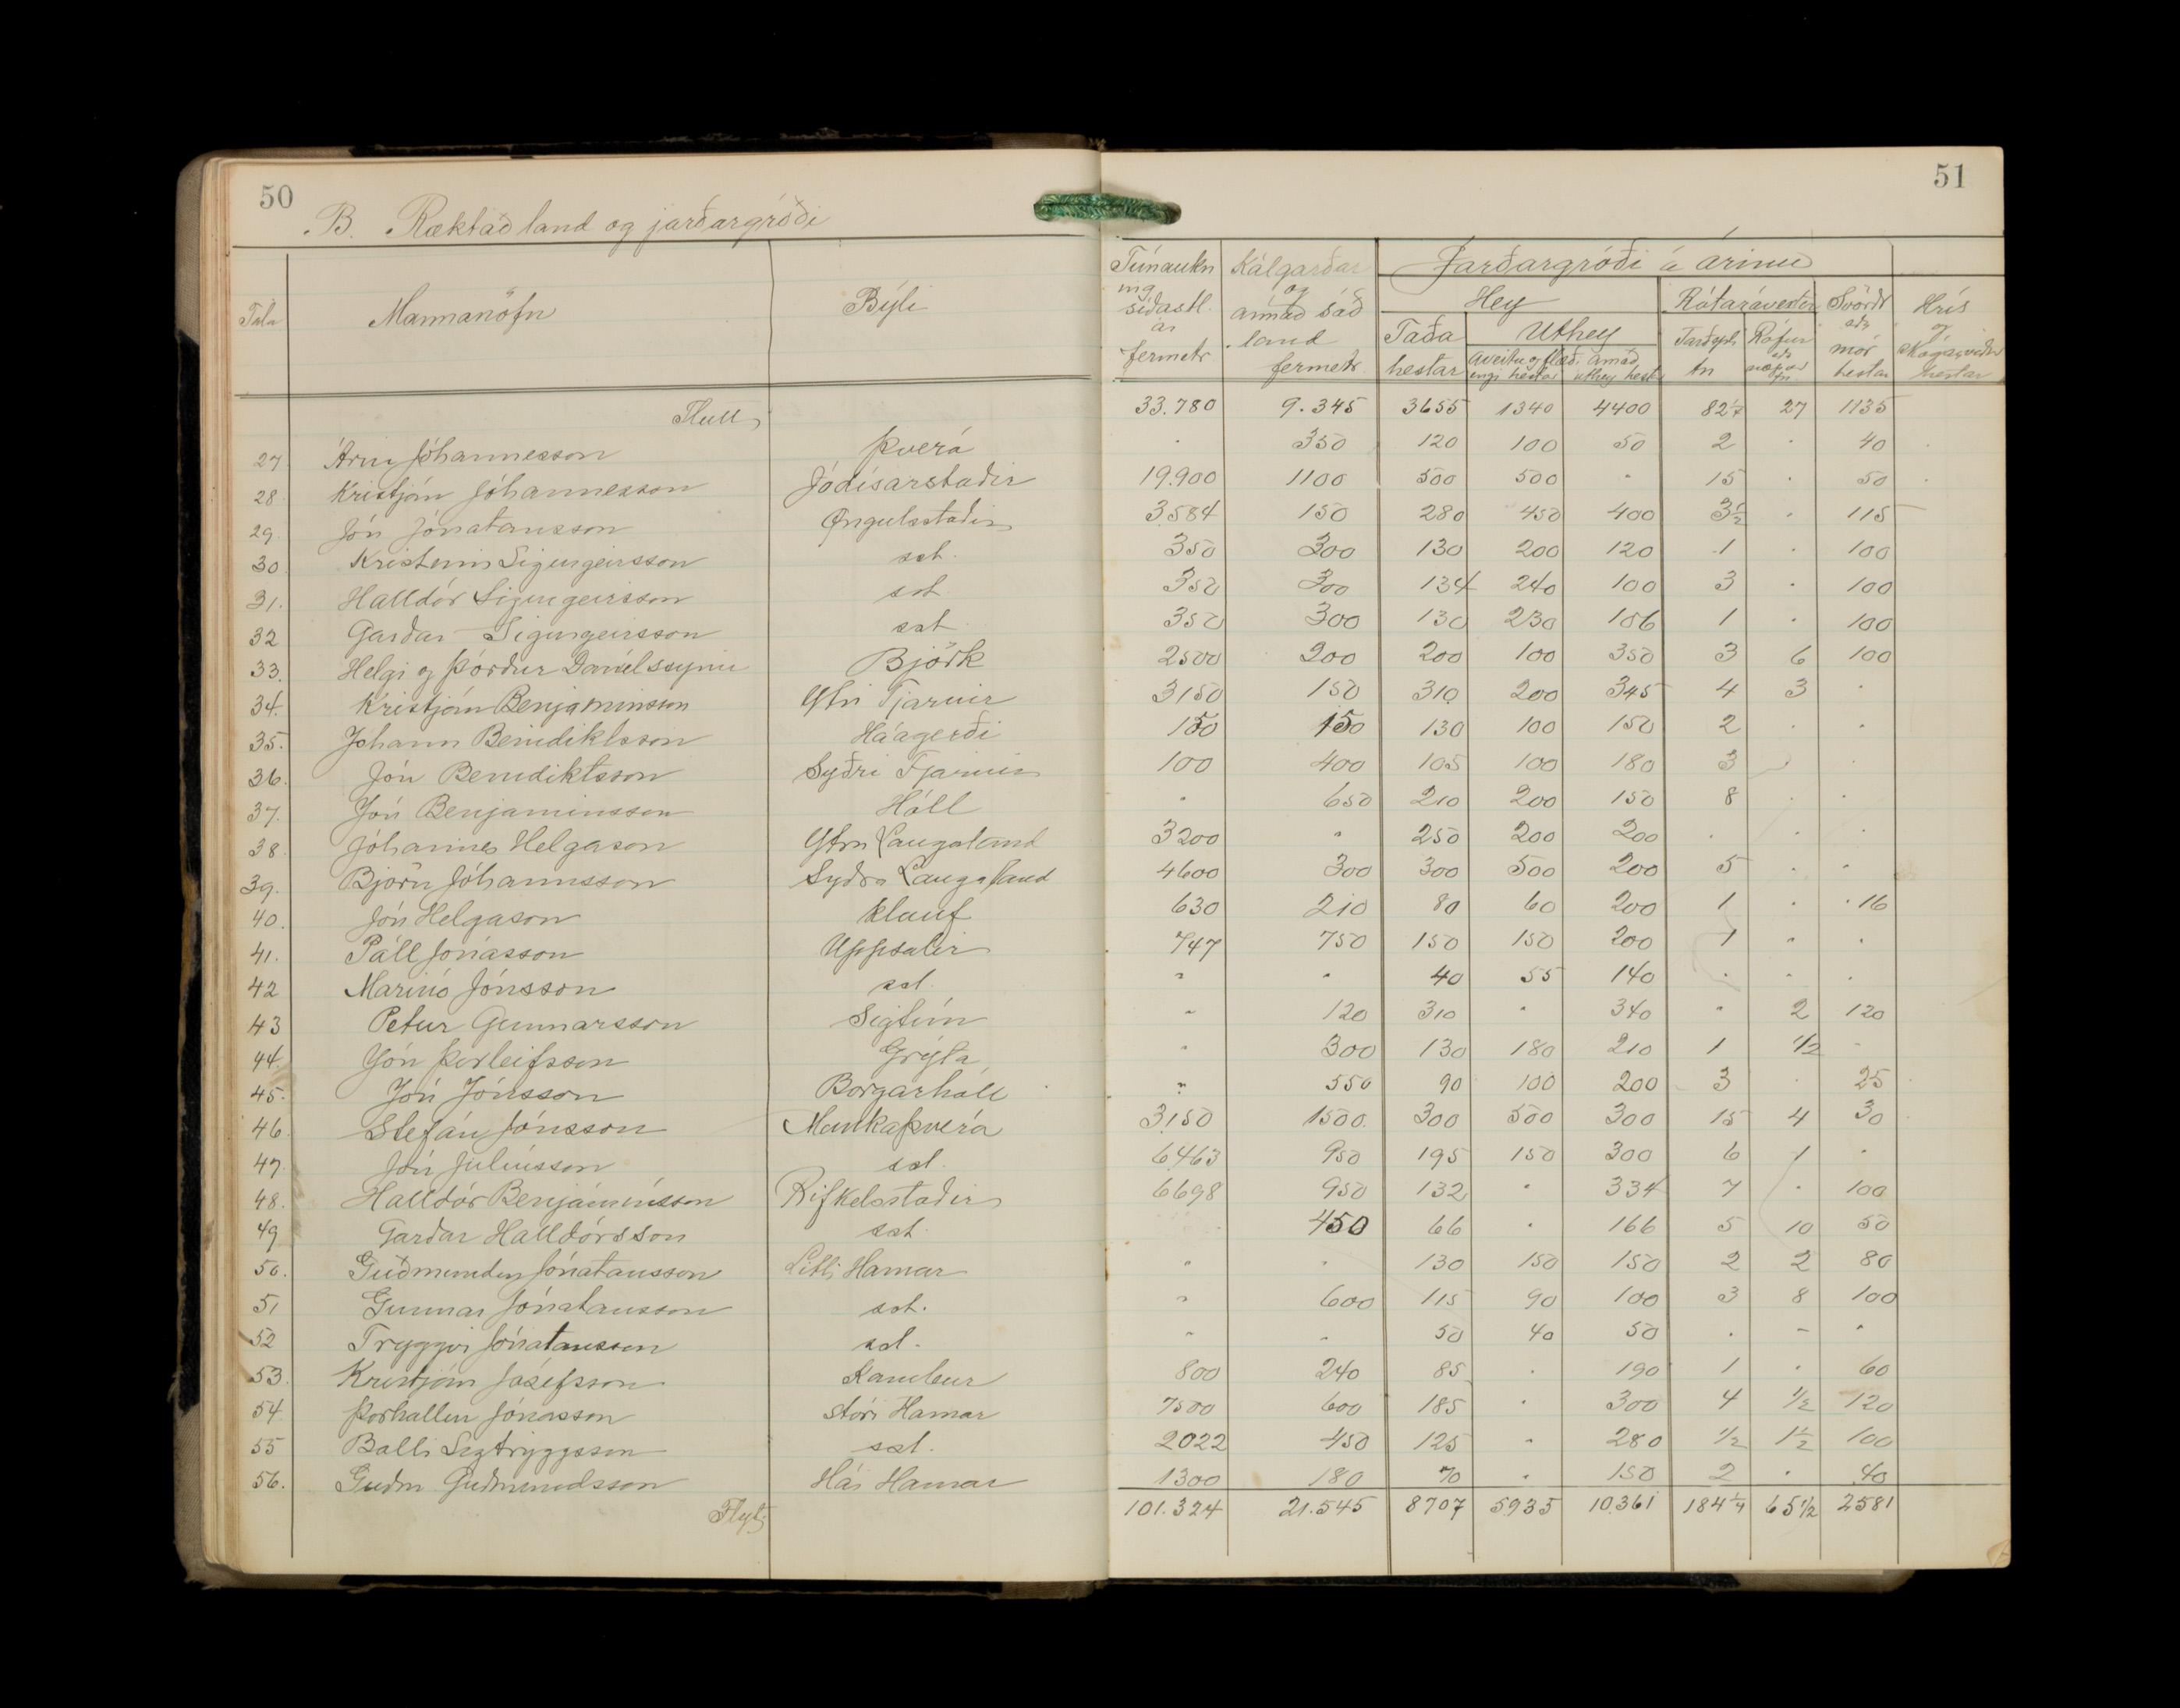 50
B. Ræktað land og jarðargróði
51
Tala Mannanöfn Býli Túnaukning síðastl. ár fermetr Kálgarðar og annað sáðland fermetr. Jarðargróði á árinu
Hey Rótarávextir Svörðr eða mór hestar Hrís og skógarviður hestar
Taða hestar Úthey Jarðepli tn Rófur eða næpur tn
Áveitu og flæðiengi hestar annað úthey hestar
Flutt 33.780 9.345 3655 1340 4400 82 27 1135
27 Árni Jóhannesson Þverá . 350 120 100 50 2 . 40
28 Kristján Jóhannesson Jódísarstaðir 19.900 1100 500 500 . 15 . 50
29 Jón Jónatansson Öngulsstaðir 3584 150 280 450 400 3½ . 115
30 Kristinn Sigurgeirsson sst. 350 300 130 200 120 1 . 100
31. Halldór Sigurgeirsson sst. 350 300 134 240 100 3 . 100
32 Garðar Sigurgeirsson sst 350 300 130 230 106 1 . 100
33. Helgi og Þórður Daníelssynir Björk 2500 200 200 100 350 3 6 100
34. Kristján Benjaminsson Ytri Tjarnir 3150 150 310 200 345 4 3 .
35. Jóhann Benidiktsson Háagerði 150 150 130 100 150 2 . .
36. Jón Benidiktsson Syðri Tjarnir 100 400 105 100 180 3 .
37. Jón Benjaminsson Hóll " 650 210 200 150 8 . .
38 Jóhannes Helgason Ytra Laugaland 3200 " 250 200 200 . . .
39. Björn Jóhannsson Syðra Laugaland 4600 300 300 500 200 5 . .
40. Jón Helgason Klauf 630 210 80 60 200 1 . 16
41. Páll Jónasson Uppsalir 747 750 150 150 200 1 . .
42 Marinó Jónsson sst. " " 40 55 140 . . .
43 Petur Gunnarsson Sigtún " 120 310 . 340 " 2 120
44. Jón Þorleifsson Grýta " 300 130 180 210 1 1/2 -
45. Jón Jónsson Borgarhóll " 550 90 100 200 3 . 25
46 Stefán Jónsson Munkaþverá 3150 1500 300 500 300 15 4 30
47. Jón Júlíusson sst. 6463 950 195 150 300 6 1 .
48. Halldór Benjamínsson Rifkelsstaðir 6698 950 132 . 334 7 . 100
49 Garðar Halldórsson sst. 450 66 . 166 5 10 50
50. Guðmundur Jónatansson Litli Hamar " . 130 150 150 2 2 80
51 Gunnar Jónatansson sst. " 600 115 90 100 3 8 100
52 Tryggvi Jónatansson sst. " . 50 40 50 . - .
53. Kristján Jósefsson Kambur 800 240 85 . 190 1 . 60
54. Þorhallur Jónasson Stóri Hamar 7500 600 185 . 300 4 1/2 120
55 Balli Sigtryggsson sst. 2022 450 125 . 280 1/2 1½ 100
56. Guðm Guðmundsson Hái Hamar 1300 180 70 . 150 2 . 40
Flyt 101.324 21.545 8707 5935 10361 184¼ 65 1/2 2581